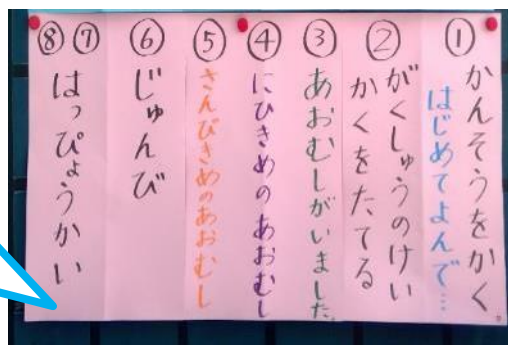 ① かんそうをかく
はじめてよんで…
② がくしゅうのけい
かくをたてる
③ あおむしがいました。
④ にひきめのあおむし
⑤ さんびきめのあおむし
⑥ じゅんび
⑦⑧ はっぴょうかい